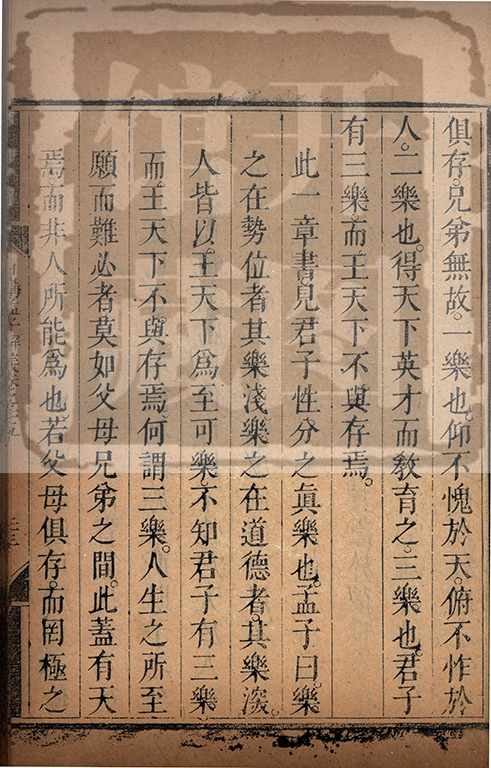 俱存。兄弟無故。一樂也。仰不愧於天。俯不怍於
人。二樂也。得天下英才而敎育之。三樂也。君子
有三樂而王天下不與存焉。
此一章書。見君子性分之眞樂也。孟子曰。樂
之在勢位者其樂淺。樂之在道德者。其樂深。
人皆以王天下爲至可樂。不知君子有三樂
而王天下不與存焉。何謂三樂。人生之所至
願而難必者莫如父母兄弟之間。此蓋有天
焉而非人所能爲也。若父母俱存。而罔極之
日講
解義卷二十五